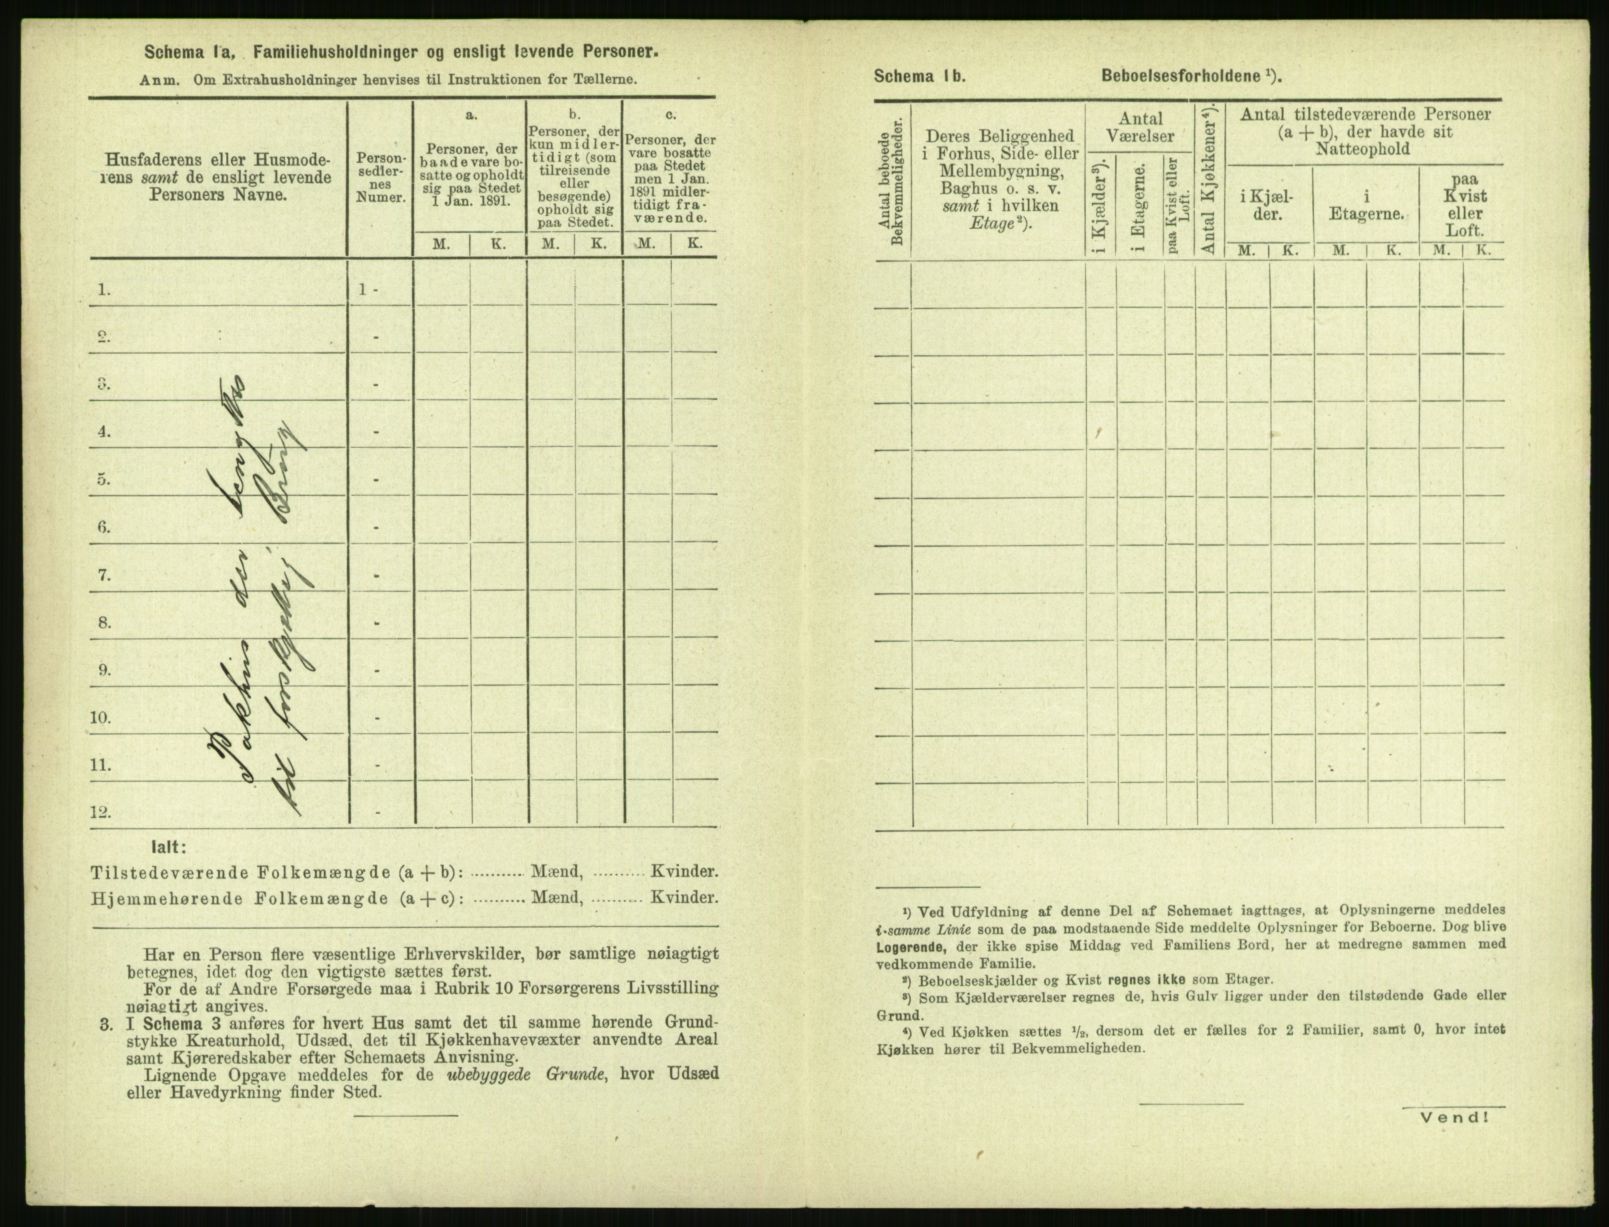 Schema 1a, Familiehusholdninger og ensligt levende Personer.
Anm. Om Extrahusholdninger henvises til Instruktionen for Tællerne.
Husfaderens eller Husmode-
rens samt de ensligt levende
Personers Navne.
Person-
sedler-
nes
Numer.
a.
Personer, der
baade vare bo-
satte og opholdt
sig paa Stedet
1 Jan. 1891.
b.
Personer, der
kun midler-
tidigt (som
tilreisende
eller
besøgende)
opholdt sig
paa Stedet.
c.
Personer, der
vare bosatte
paa Stedet
men 1 Jan.
1891 midler-
tidigt fra-
værende.
M. K. M. K. M. K.
1. 1 -
2. -
3. -
4. -
5. -
6. -
7. -
8. -
9. -
10. -
11. -
12. -
Pakhus der
til forskjellig Brug
Ialt:
Tilstedeværende Folkemængde (a + b): .......... Mænd, .......... Kvinder.
Hjemmehørende Folkemængde (a + c): .......... Mænd, .......... Kvinder.
Har en Person flere væsentlige Erhvervskilder, bør samtlige nøiagtigt
betegnes, idet dog den vigtigste sættes først.
For de af Andre Forsørgede maa i Rubrik 10 Forsørgerens Livsstilling
nøiagtigt angives.
3. I Schema 3 anføres for hvert Hus samt det til samme hørende Grund-
stykke Kreaturhold, Udsæd, det til Kjøkkenhavevæxter anvendte Areal
samt Kjøreredskaber efter Schemaets Anvisning.
Lignende Opgave meddeles for de ubebyggede Grunde, hvor Udsæd
eller Havedyrkning finder Sted.
Schema 1b. Beboelsesforholdene ¹).
Antal beboede
Bekvemmeligheder.
Deres Beliggenhed
i Forhus, Side- eller
Mellembygning,
Baghus o. s. v.
samt i hvilken
Etage²).
Antal
Værelser
i Kjælder³).
i Etagerne.
paa Kvist eller
Loft.
Antal Kjøkkener⁴).
Antal tilstedeværende Personer
(a + b), der havde sit
Natteophold
i Kjæl-
der.
i
Etagerne.
paa
Kvist
eller
Loft.
M. K. M. K. M. K.
¹) Ved Udfyldning af denne Del af Schemaet iagttages, at Oplysningerne meddeles
i samme Linie som de paa modstaaende Side meddelte Oplysninger for Beboerne. Dog blive
Logerende, der ikke spise Middag ved Familiens Bord, her at medregne sammen med
vedkommende Familie.
²) Beboelseskjælder og Kvist regnes ikke som Etager.
³) Som Kjælderværelser regnes de, hvis Gulv ligger under den tilstødende Gade eller
Grund.
⁴) Ved Kjøkken sættes ¹/₂, dersom det er fælles for 2 Familier, samt 0, hvor intet
Kjøkken hører til Bekvemmeligheden.
Vend!